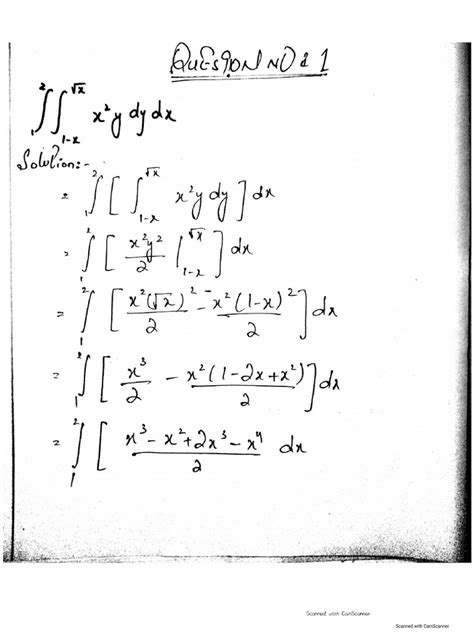 QUESTION NO 1
∫₁² ∫₁₋ₓ^√x x²y dy dx
Solution:-
= ∫₁² [ ∫₁₋ₓ^√x x²y dy ] dx
= ∫₁² [ x²y²/2 |₁₋ₓ^√x ] dx
= ∫₁² [ x²(√x)²/2 - x²(1-x)²/2 ] dx
= ∫₁² [ x³/2 - x²(1-2x+x²)/2 ] dx
= ∫₁² [ x³-x²+2x³-x⁴/2 dx
Scanned with CamScanner
Scanned with CamScanner